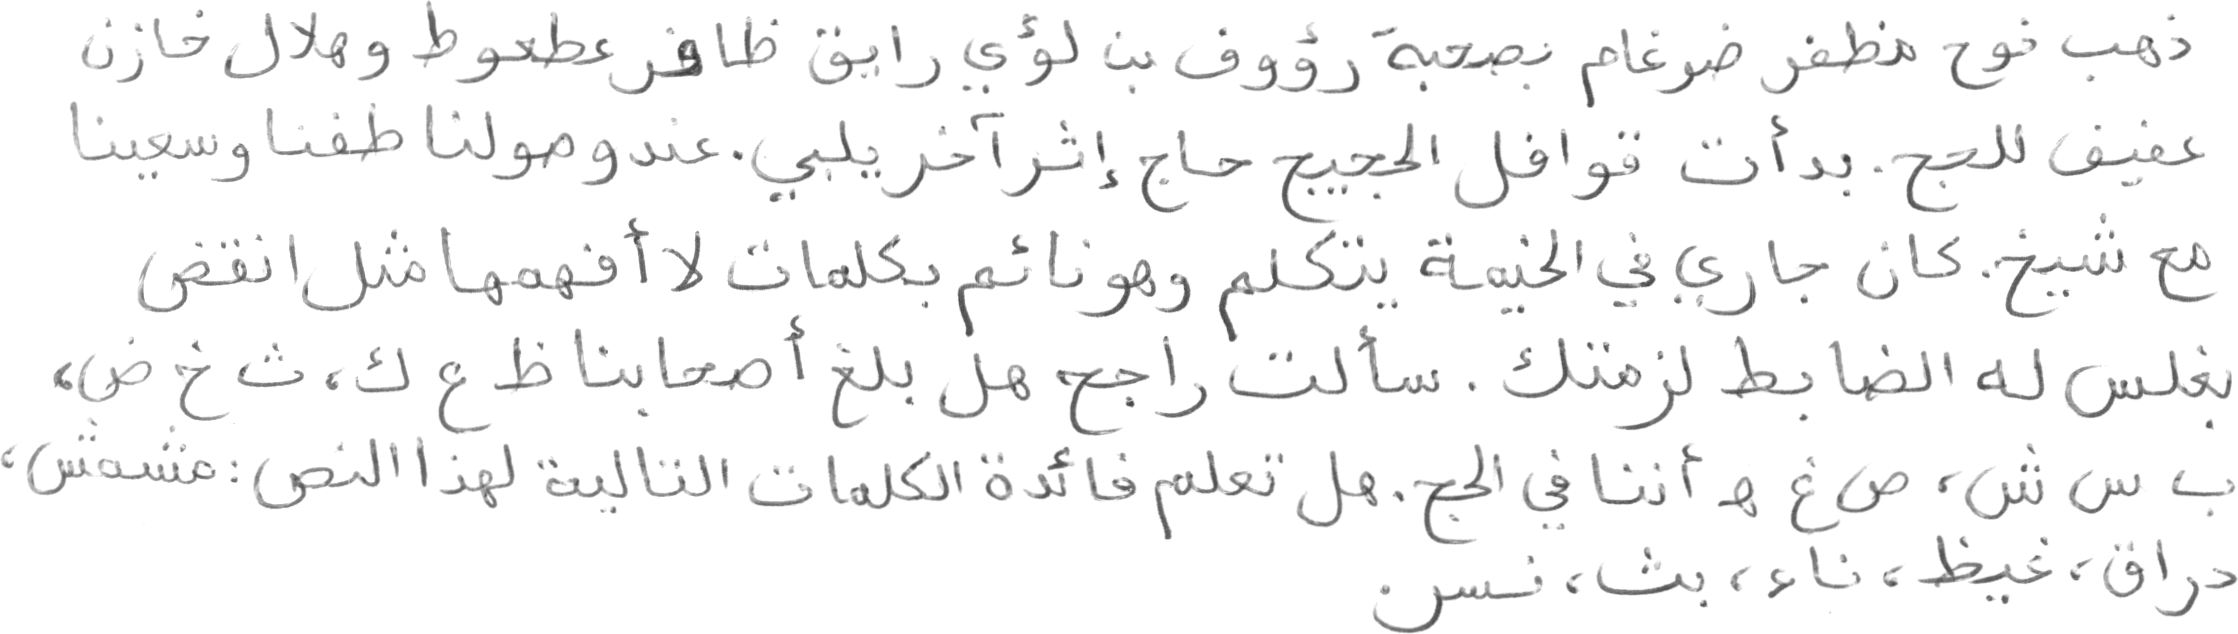 ذهب نوح مظفر ضرغام بصحبة رؤوف بن لؤي رايق ظافر عطعوط و هلال خازن
عفيف للحج. بدأت قوافل الحجيج حاج إثر آخر يلبي. عند وصولنا طفنا وسعينا
مع شيخ. كان جاري في الخيمة يتكلم وهو نائم بكلمات لا أفهمها مثل انقض
بغلس له الضابط لزمتك. سألت راجح هل بلغ أصحابنا ظ ع ك، ث خ ض،
ب س ش، ص غ ه أننا في الحج. هل تعلم فائدة الكلمات التالية لهذا النص: مشمش،
دراق، غيظ، ناء، بث، نسر.